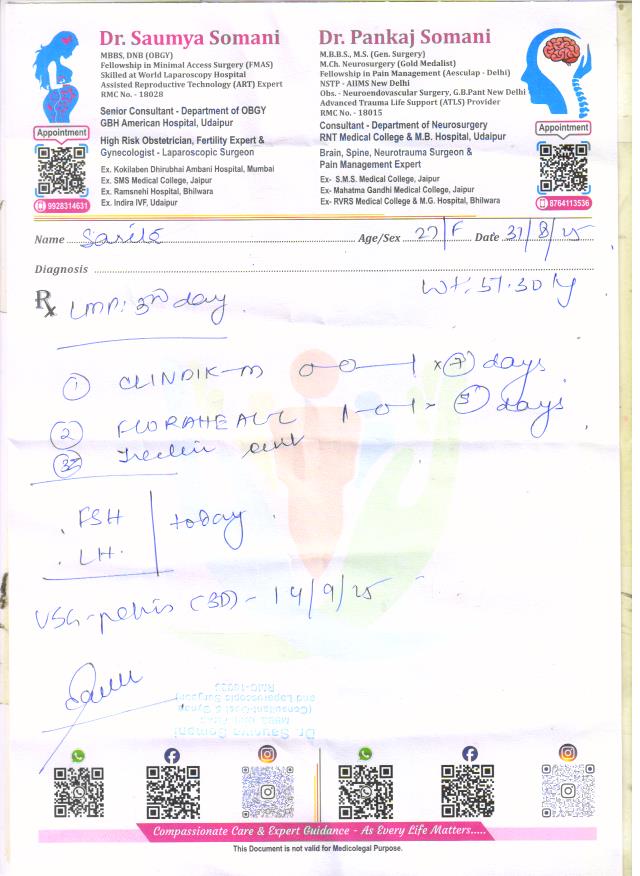 Dr. Saumya Somani
MBBS, DNB (OBGY)
Fellowship in Minimal Access Surgery (FMAS)
Skilled at World Laparoscopy Hospital
Assisted Reproductive Technology (ART) Expert
RMC No. - 18028
Senior Consultant - Department of OBGY
GBH American Hospital, Udaipur
High Risk Obstetrician, Fertility Expert &
Gynecologist - Laparoscopic Surgeon
Ex. Kokilaben Dhirubhai Ambani Hospital, Mumbai
Ex. SMS Medical College, Jaipur
Ex. Ramsnehi Hospital, Bhilwara
Ex. Indira IVF, Udaipur
Appointment
9928314631
Dr. Pankaj Somani
M.B.B.S., M.S. (Gen. Surgery)
M.Ch. Neurosurgery (Gold Medalist)
Fellowship in Pain Management (Aesculap - Delhi)
NSTP - AIIMS New Delhi
Obs. - Neuroendovascular Surgery, G.B.Pant New Delhi
Advanced Trauma Life Support (ATLS) Provider
RMC No. - 18015
Consultant - Department of Neurosurgery
RNT Medical College & M.B. Hospital, Udaipur
Brain, Spine, Neurotrauma Surgeon &
Pain Management Expert
Ex- S.M.S. Medical College, Jaipur
Ex- Mahatma Gandhi Medical College, Jaipur
Ex- RVRS Medical College & M.G. Hospital, Bhilwara
Appointment
8764113536
Name Age/Sex 27/F Date 31/8/25
Diagnosis
Wt: 57.30 kg
Rx LMP: 3rd day
① CLINDIK-M 0-0-1 x 7 days
② FLORAHEALL 1-0-1 x 5 days
③
. FSH | today
. LH.
USG-pelvis (3D) - 14/9/25
Dr. Saumya Somani
Compassionate Care & Expert Guidance - As Every Life Matters.....
This Document is not valid for Medicolegal Purpose.